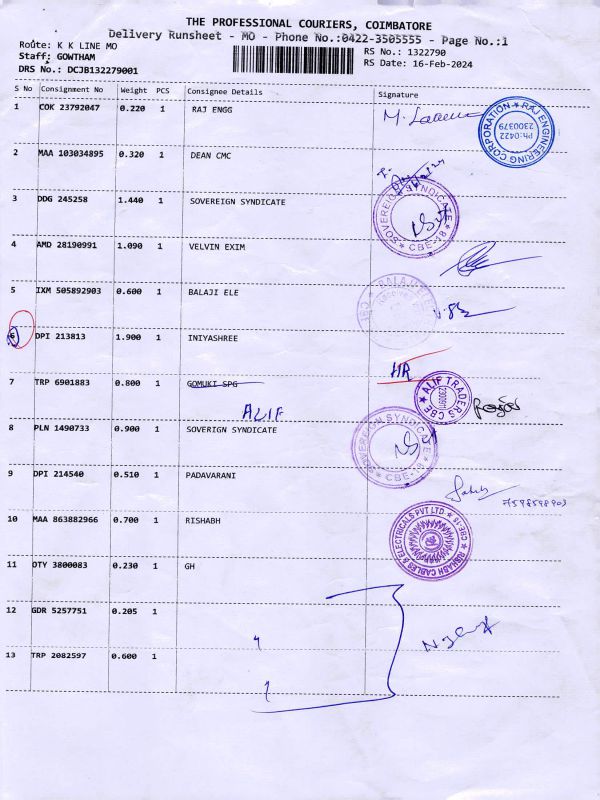 THE PROFESSIONAL COURIERS, COIMBATORE
Delivery Runsheet - MO - Phone No.:0422-3505555 - Page No.:1
Route: K K LINE MO
RS No.: 1322790
Staff: GOWTHAM
RS Date: 16-Feb-2024
DRS No.: DCJB132279001
S No Consignment No Weight PCS Consignee Details Signature
1 COK 23792047 0.220 1 RAJ ENGG
RAJ ENGINEERING CORPORATION
PH:0422
2300379
2 MAA 103034895 0.320 1 DEAN CMC
3 DDG 245258 1.440 1 SOVEREIGN SYNDICATE
SOVEREIGN SYNDICATE CBE-18
4 AMD 28190991 1.090 1 VELVIN EXIM
5 IXM 505892903 0.600 1 BALAJI ELE
6 DPI 213813 1.900 1 INIYASHREE
HR
7 TRP 6901883 0.800 1 GOMUKI SPG
ALIF
ALIF TRADERS CBE
8 PLN 1490733 0.900 1 SOVERIGN SYNDICATE
SOVEREIGN SYNDICATE CBE-18
9 DPI 214540 0.510 1 PADAVARANI
7598598903
10 MAA 863882966 0.700 1 RISHABH
RISHABH CABLES & ELECTRICALS PVT LTD CBE-18
11 OTY 3800083 0.230 1 GH
12 GDR 5257751 0.205 1
13 TRP 2082597 0.600 1